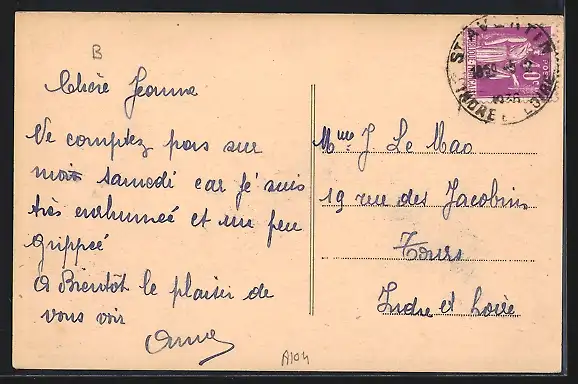 B
Chère Jeanne
Ne comptez pas sur
moi samedi car je suis
très enrhumée et un peu
grippée
A Bientôt le plaisir de
vous voir
Anna
A104
ST AVERTIN
1938
INDRE ET LOIRE
Mme J Le Mao
19 rue des Jacobins
Tours
Indre et Loire